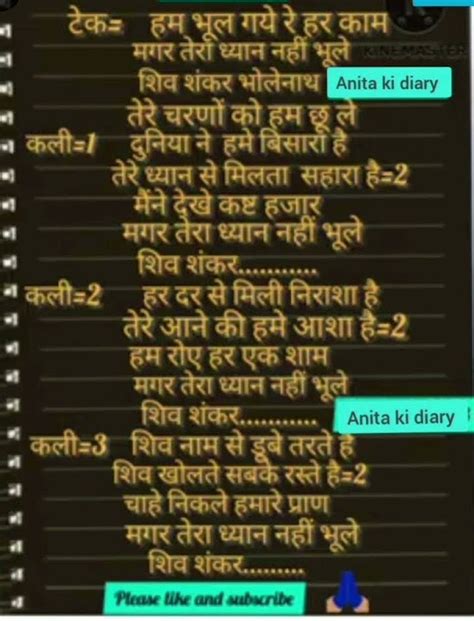 टेक= हम भूल गये रे हर काम
मगर तेरा ध्यान नहीं भूले KINEMASTER
शिव शंकर भोलेनाथ Anita ki diary
तेरे चरणों को हम छू ले
कली=1 दुनिया ने हमे बिसारा है
तेरे ध्यान से मिलता सहारा है=2
मैंने देखे कष्ट हजार
मगर तेरा ध्यान नहीं भूले
शिव शंकर............
कली=2 हर दर से मिली निराशा है
तेरे आने की हमे आशा है=2
हम रोए हर एक शाम
मगर तेरा ध्यान नहीं भूले
शिव शंकर............ Anita ki diary
कली=3 शिव नाम से डूबे तरते है
शिव खोलते सबके रस्ते है=2
चाहे निकले हमारे प्राण
मगर तेरा ध्यान नहीं भूले
शिव शंकर.........
Please like and subscribe